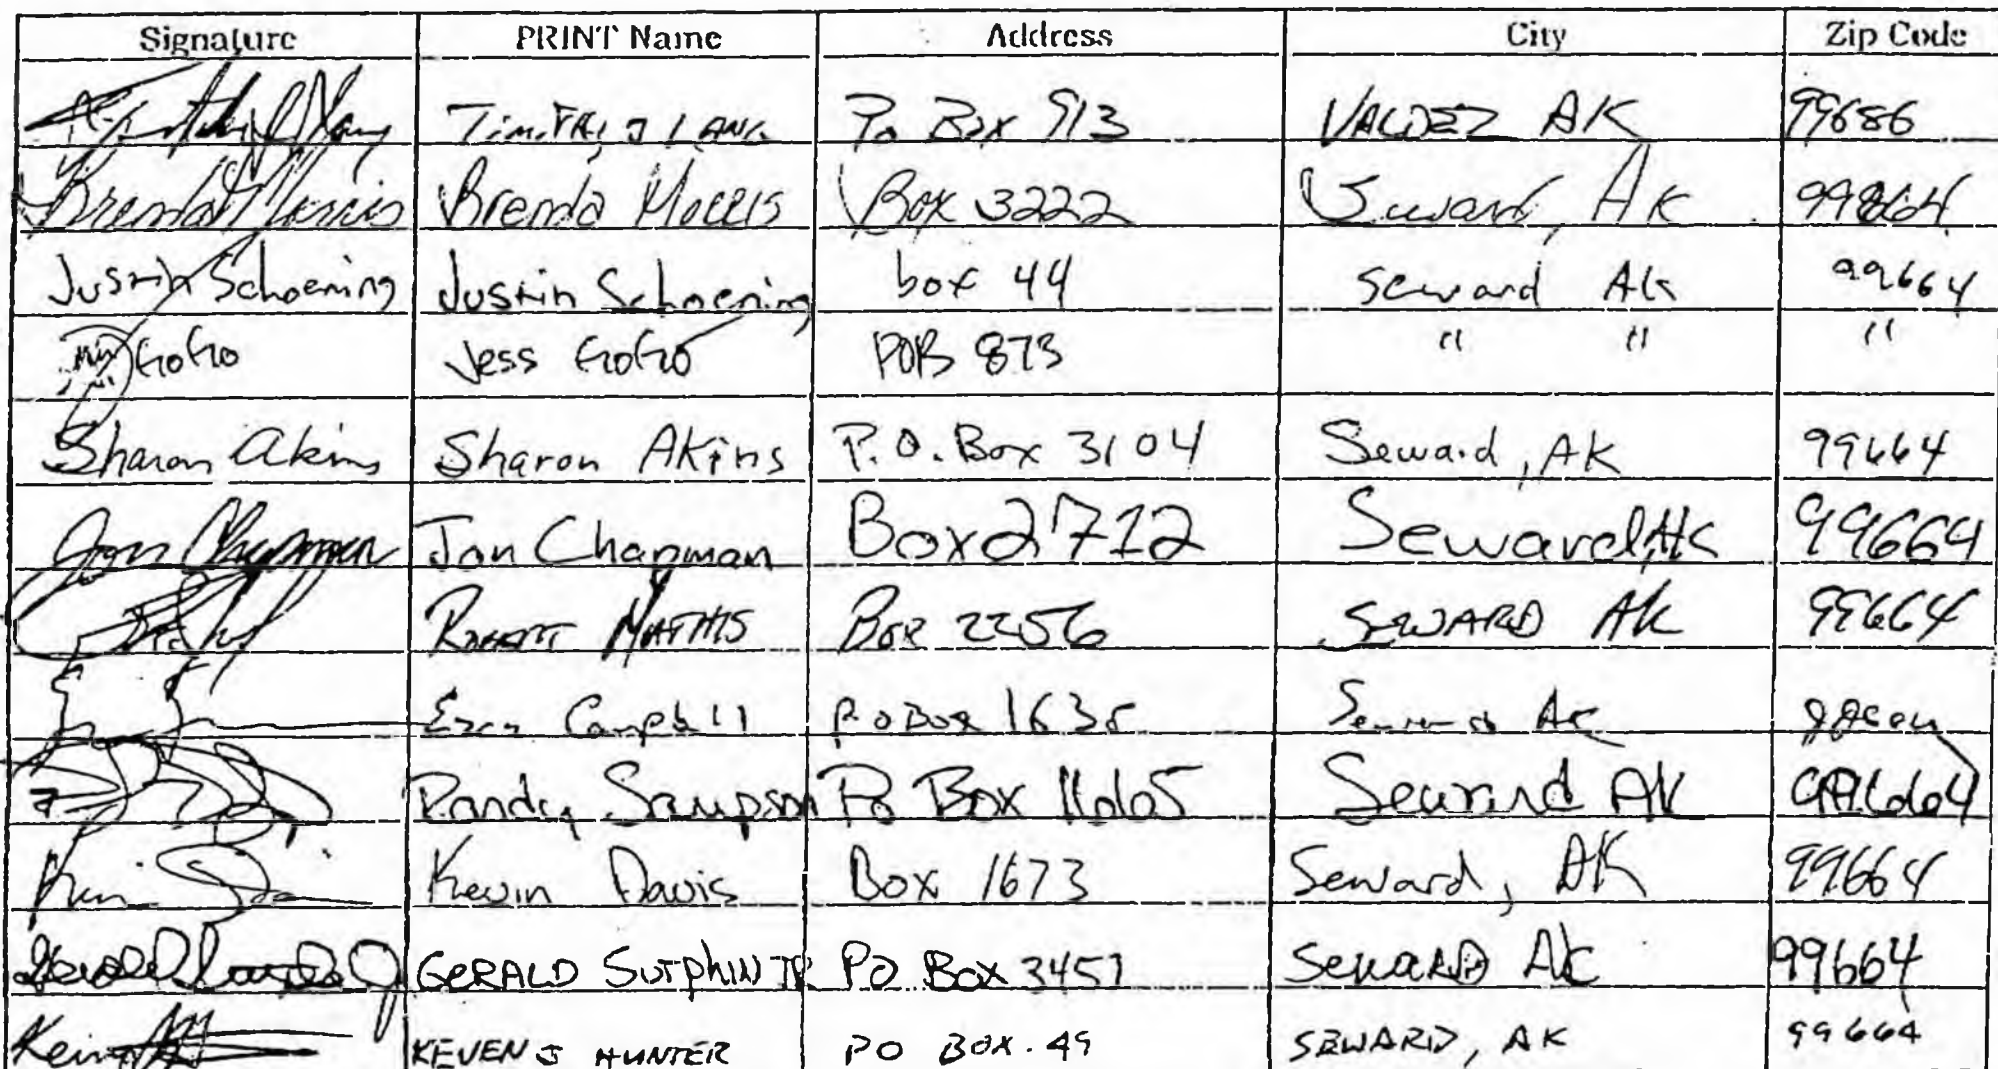 Signature PRINT Name Address City Zip Code
Timothy J Lang Po Box 913 VALDEZ AK 99686
Brenda Morris Brenda Morris Box 3222 Seward, AK 99664
Justin Schoening Justin Schoening box 44 Seward AK 99664
GoGo Jess GoGo POB 873 " " "
Sharon Akins Sharon Akins P.O. Box 3104 Seward, AK 99664
Jan Chapman Jan Chapman Box 2712 Seward, AK 99664
Robert MATHIS Box 2256 SEWARD AK 99664
Campbell P O Box Seward AK
Randy Sampson Po Box 11665 Seward AK 99664
Kevin Davis Box 1673 Seward, AK 99664
GERALD Sutphin JR PO Box 3451 SewARD AK 99664
KEVEN J HUNTER PO BOX 49 SEWARD, AK 99664